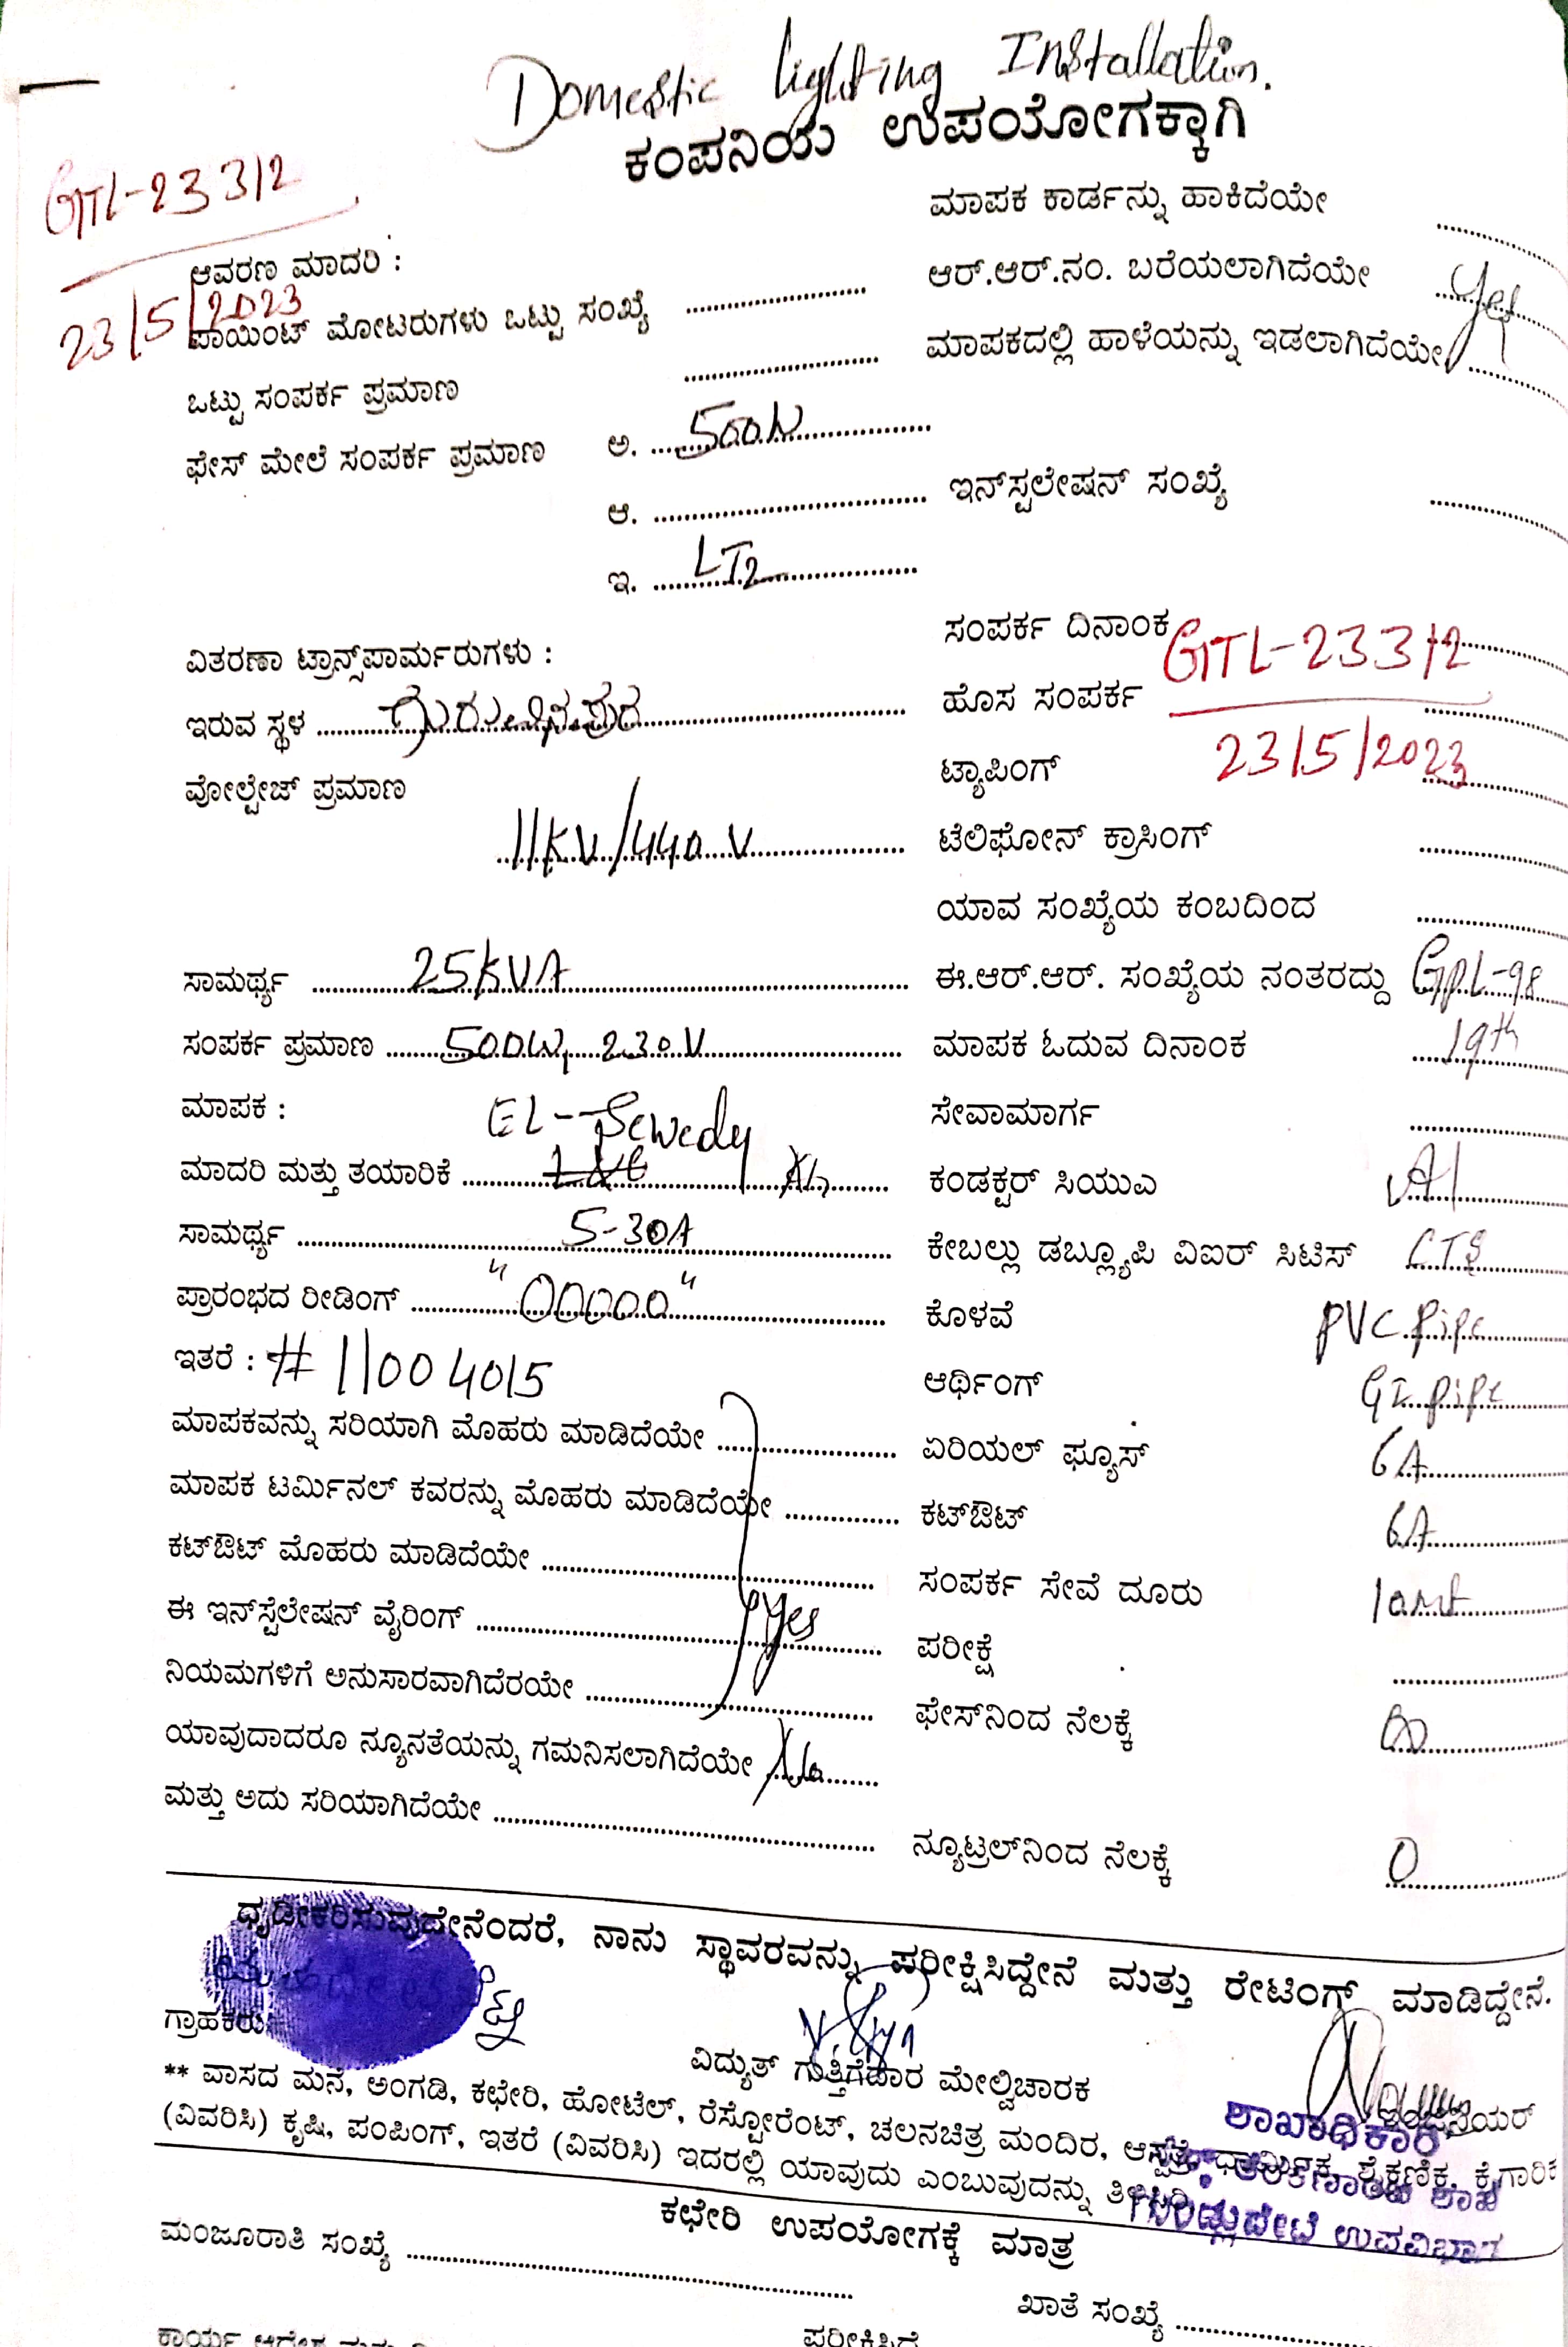 Domestic lighting Installation.
ಕಂಪನಿಯ ಉಪಯೋಗಕ್ಕಾಗಿ
GTL-23312
23/5/2023
ಆವರಣ ಮಾದರಿ :
ಪಾಯಿಂಟ್ ಮೋಟರುಗಳು ಒಟ್ಟು ಸಂಖ್ಯೆ
ಒಟ್ಟು ಸಂಪರ್ಕ ಪ್ರಮಾಣ
ಫೇಸ್ ಮೇಲೆ ಸಂಪರ್ಕ ಪ್ರಮಾಣ ಅ. 500W
ಆ.
ಇ. LT2
ವಿತರಣಾ ಟ್ರಾನ್ಸ್‌ಪಾರ್ಮರುಗಳು :
ಇರುವ ಸ್ಥಳ
ವೋಲ್ಟೇಜ್ ಪ್ರಮಾಣ
11KV/440 V
ಸಾಮರ್ಥ್ಯ 25KVA
ಸಂಪರ್ಕ ಪ್ರಮಾಣ 500W, 230V
ಮಾಪಕ : EL-Sewedy
ಮಾದರಿ ಮತ್ತು ತಯಾರಿಕೆ
ಸಾಮರ್ಥ್ಯ 5-30A
ಪ್ರಾರಂಭದ ರೀಡಿಂಗ್ "00000"
ಇತರೆ : # 11004015
ಮಾಪಕವನ್ನು ಸರಿಯಾಗಿ ಮೊಹರು ಮಾಡಿದೆಯೇ
ಮಾಪಕ ಟರ್ಮಿನಲ್ ಕವರನ್ನು ಮೊಹರು ಮಾಡಿದೆಯೇ
ಕಟ್‌ಔಟ್ ಮೊಹರು ಮಾಡಿದೆಯೇ
ಈ ಇನ್‌ಸ್ಟೆಲೇಷನ್ ವೈರಿಂಗ್ Yes
ನಿಯಮಗಳಿಗೆ ಅನುಸಾರವಾಗಿದೆರಯೇ
ಯಾವುದಾದರೂ ನ್ಯೂನತೆಯನ್ನು ಗಮನಿಸಲಾಗಿದೆಯೇ No
ಮತ್ತು ಅದು ಸರಿಯಾಗಿದೆಯೇ
ಮಾಪಕ ಕಾರ್ಡನ್ನು ಹಾಕಿದೆಯೇ
ಆರ್.ಆರ್.ನಂ. ಬರೆಯಲಾಗಿದೆಯೇ Yes
ಮಾಪಕದಲ್ಲಿ ಹಾಳೆಯನ್ನು ಇಡಲಾಗಿದೆಯೇ
ಇನ್‌ಸ್ಟಲೇಷನ್ ಸಂಖ್ಯೆ
ಸಂಪರ್ಕ ದಿನಾಂಕ GTL-23312
ಹೊಸ ಸಂಪರ್ಕ
ಟ್ಯಾಪಿಂಗ್ 23/5/2023
ಟೆಲಿಫೋನ್ ಕ್ರಾಸಿಂಗ್
ಯಾವ ಸಂಖ್ಯೆಯ ಕಂಬದಿಂದ
ಈ.ಆರ್.ಆರ್. ಸಂಖ್ಯೆಯ ನಂತರದ್ದು GPL-98
ಮಾಪಕ ಓದುವ ದಿನಾಂಕ 19th
ಸೇವಾಮಾರ್ಗ
ಕಂಡಕ್ಟರ್ ಸಿಯುಎ Al
ಕೇಬಲ್ಲು ಡಬ್ಲ್ಯೂಪಿ ವಿಐರ್ ಸಿಟಿಸ್ CTS
ಕೊಳವೆ PVC pipe
ಆರ್ಥಿಂಗ್ GI pipe
ಏರಿಯಲ್ ಫ್ಯೂಸ್ 6A
ಕಟ್‌ಔಟ್ 6A
ಸಂಪರ್ಕ ಸೇವೆ ದೂರು 10mt
ಪರೀಕ್ಷೆ
ಫೇಸ್‌ನಿಂದ ನೆಲಕ್ಕೆ ∞
ನ್ಯೂಟ್ರಲ್‌ನಿಂದ ನೆಲಕ್ಕೆ 0
ಧೃಡೀಕರಿಸುವುದೇನೆಂದರೆ, ನಾನು ಸ್ಥಾವರವನ್ನು ಪರೀಕ್ಷಿಸಿದ್ದೇನೆ ಮತ್ತು ರೇಟಿಂಗ್ ಮಾಡಿದ್ದೇನೆ.
ಗ್ರಾಹಕರು ವಿದ್ಯುತ್ ಗುತ್ತಿಗೆದಾರ ಮೇಲ್ವಿಚಾರಕ ಇಂಜಿನಿಯರ್
ಶಾಖಾಧಿಕಾರಿ
** ವಾಸದ ಮನೆ, ಅಂಗಡಿ, ಕಛೇರಿ, ಹೋಟೆಲ್, ರೆಸ್ಟೋರೆಂಟ್, ಚಲನಚಿತ್ರ ಮಂದಿರ, ಆಸ್ಪತ್ರೆ, ಧಾರ್ಮಿಕ, ಶೈಕ್ಷಣಿಕ, ಕೈಗಾರಿಕ
(ವಿವರಿಸಿ) ಕೃಷಿ, ಪಂಪಿಂಗ್, ಇತರೆ (ವಿವರಿಸಿ) ಇದರಲ್ಲಿ ಯಾವುದು ಎಂಬುವುದನ್ನು ತಿಳಿಸಿರಿ
ಗುಂಡ್ಲುಪೇಟೆ ಉಪವಿಭಾಗ
ಕಛೇರಿ ಉಪಯೋಗಕ್ಕೆ ಮಾತ್ರ
ಮಂಜೂರಾತಿ ಸಂಖ್ಯೆ
ಖಾತೆ ಸಂಖ್ಯೆ